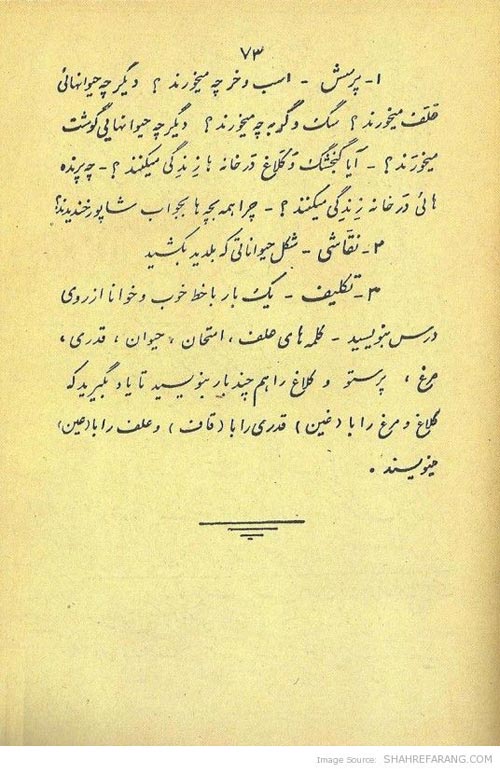 ۷۳
۱- پرسش - اسب و خر چه میخورند؟ دیگر چه حیوانهائی
علف میخورند؟ سگ و گربه چه میخورند؟ دیگر چه حیوانهایی گوشت
میخورند؟ - آیا گنجشگ و کلاغ در خانه ها زندگی میکنند؟ - چه پرنده
هائی در خانه زندگی میکنند؟ - چرا همه بچه ها بجواب شاپور خندیدند؟
۲- نقاشی - شکل حیواناتی که بلدید بکشید
۳- تکلیف - یک بار با خط خوب و خوانا از روی
درس بنویسید - کلمه های علف، امتحان، حیوان، قدری،
مرغ، پرستو و کلاغ را هم چند بار بنویسید تا یاد بگیرید که
کلاغ و مرغ را با (غین) قدری را با (قاف) و علف را با (عین)
مینویسند.
Image Source: SHAHREFARANG.COM